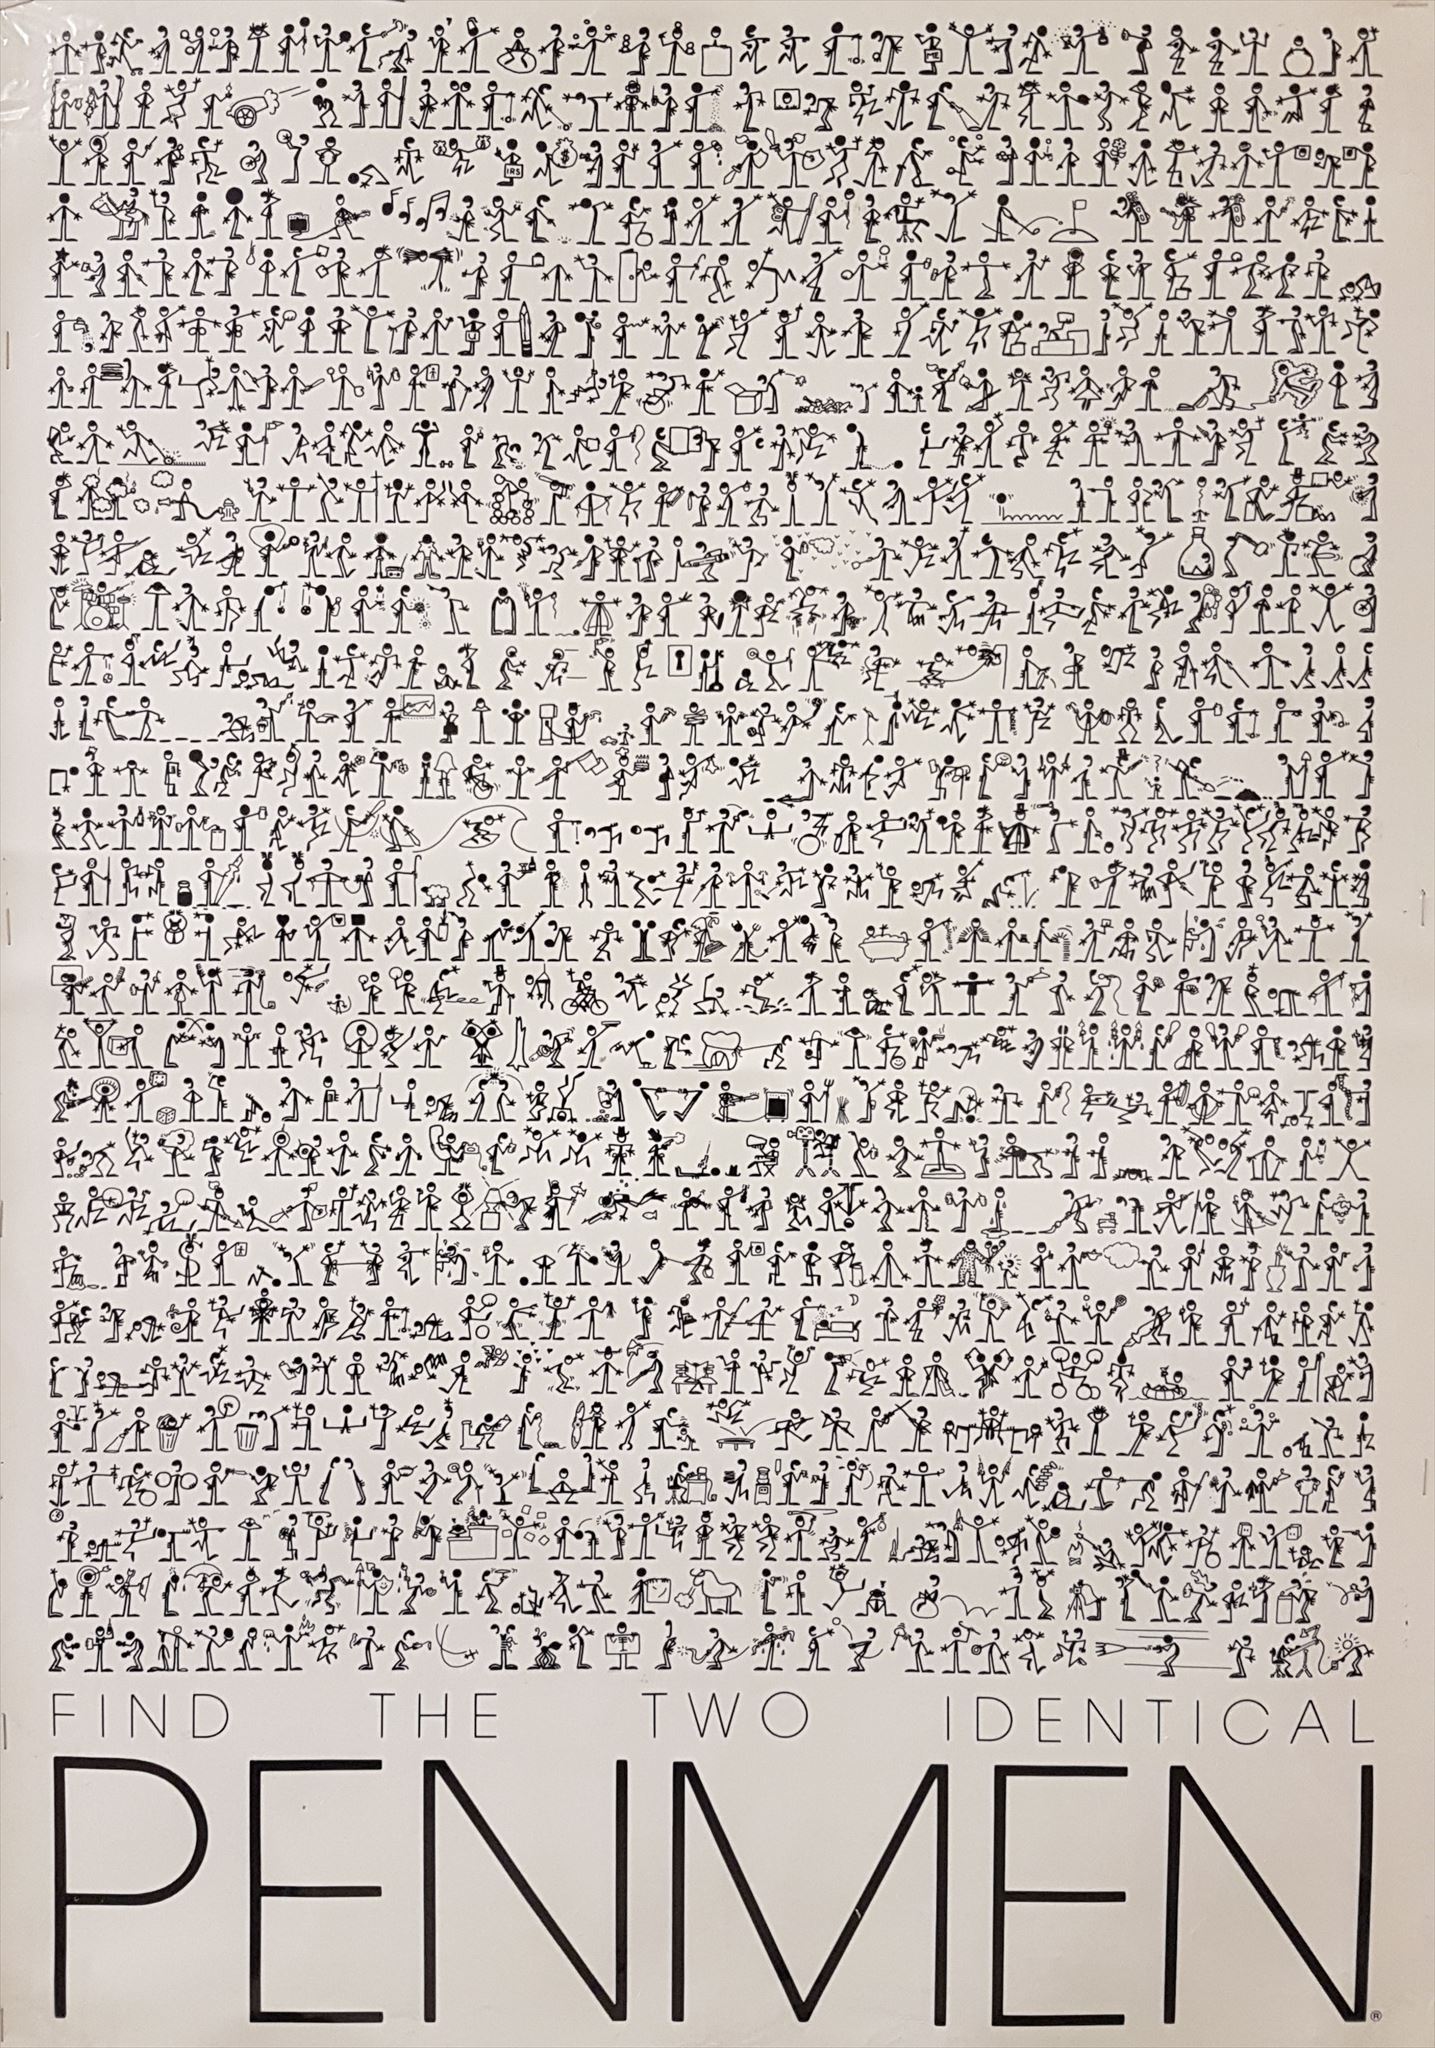 IRS
$
FIND THE TWO IDENTICAL
PENMEN®